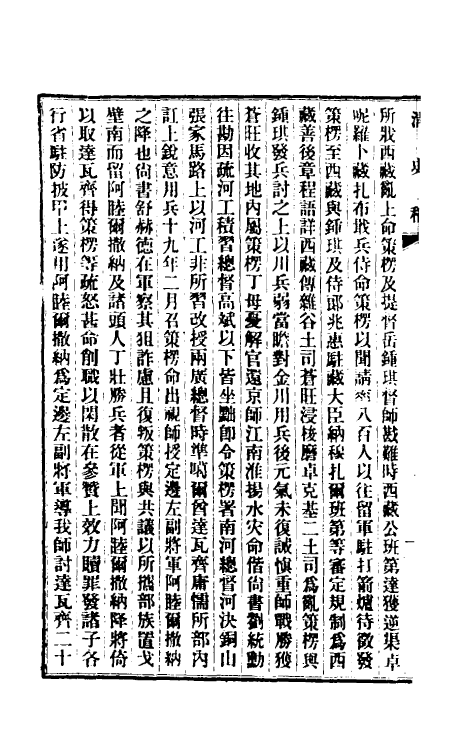 清史稿
所戕西藏亂上命策楞及提督岳鍾琪督師戡難時西藏公班第達獲逆渠卓
呢羅卜藏扎布戢兵待命策楞以聞請率八百人以往留軍駐打箭爐待徵發
策楞至西藏與鍾琪及侍郎兆惠駐藏大臣納穆扎爾班第等審定規制為西
藏善後章程語詳西藏傳雜谷土司蒼旺浸梭磨卓克基二土司為亂策楞與
鍾琪發兵討之上以川兵弱當瞻對金川用兵後元氣未復誡慎重師戰勝獲
蒼旺收其地內屬策楞丁母憂解官還京師江南淮揚水灾命偕尚書劉統勳
往勘因疏河工積習總督高斌以下皆坐黜卽令策楞署南河總督河決銅山
張家馬路上以河工非所習改授兩廣總督時準噶爾酋達瓦齊庸懦所部內
訌上銳意用兵十九年二月召策楞命出視師授定邊左副將軍阿睦爾撒納
之降也尚書舒赫德在軍察其狙詐慮且復叛策楞與共議以所攜部族置戈
壁南而留阿睦爾撒納及諸頭人丁壯勝兵者從軍上聞阿睦爾撒納降將倚
以取達瓦齊得策楞等疏怒甚命削職以閑散在參贊上效力贖罪發諸子各
行省駐防披甲上遂用阿睦爾撒納為定邊左副將軍導我師討達瓦齊二十